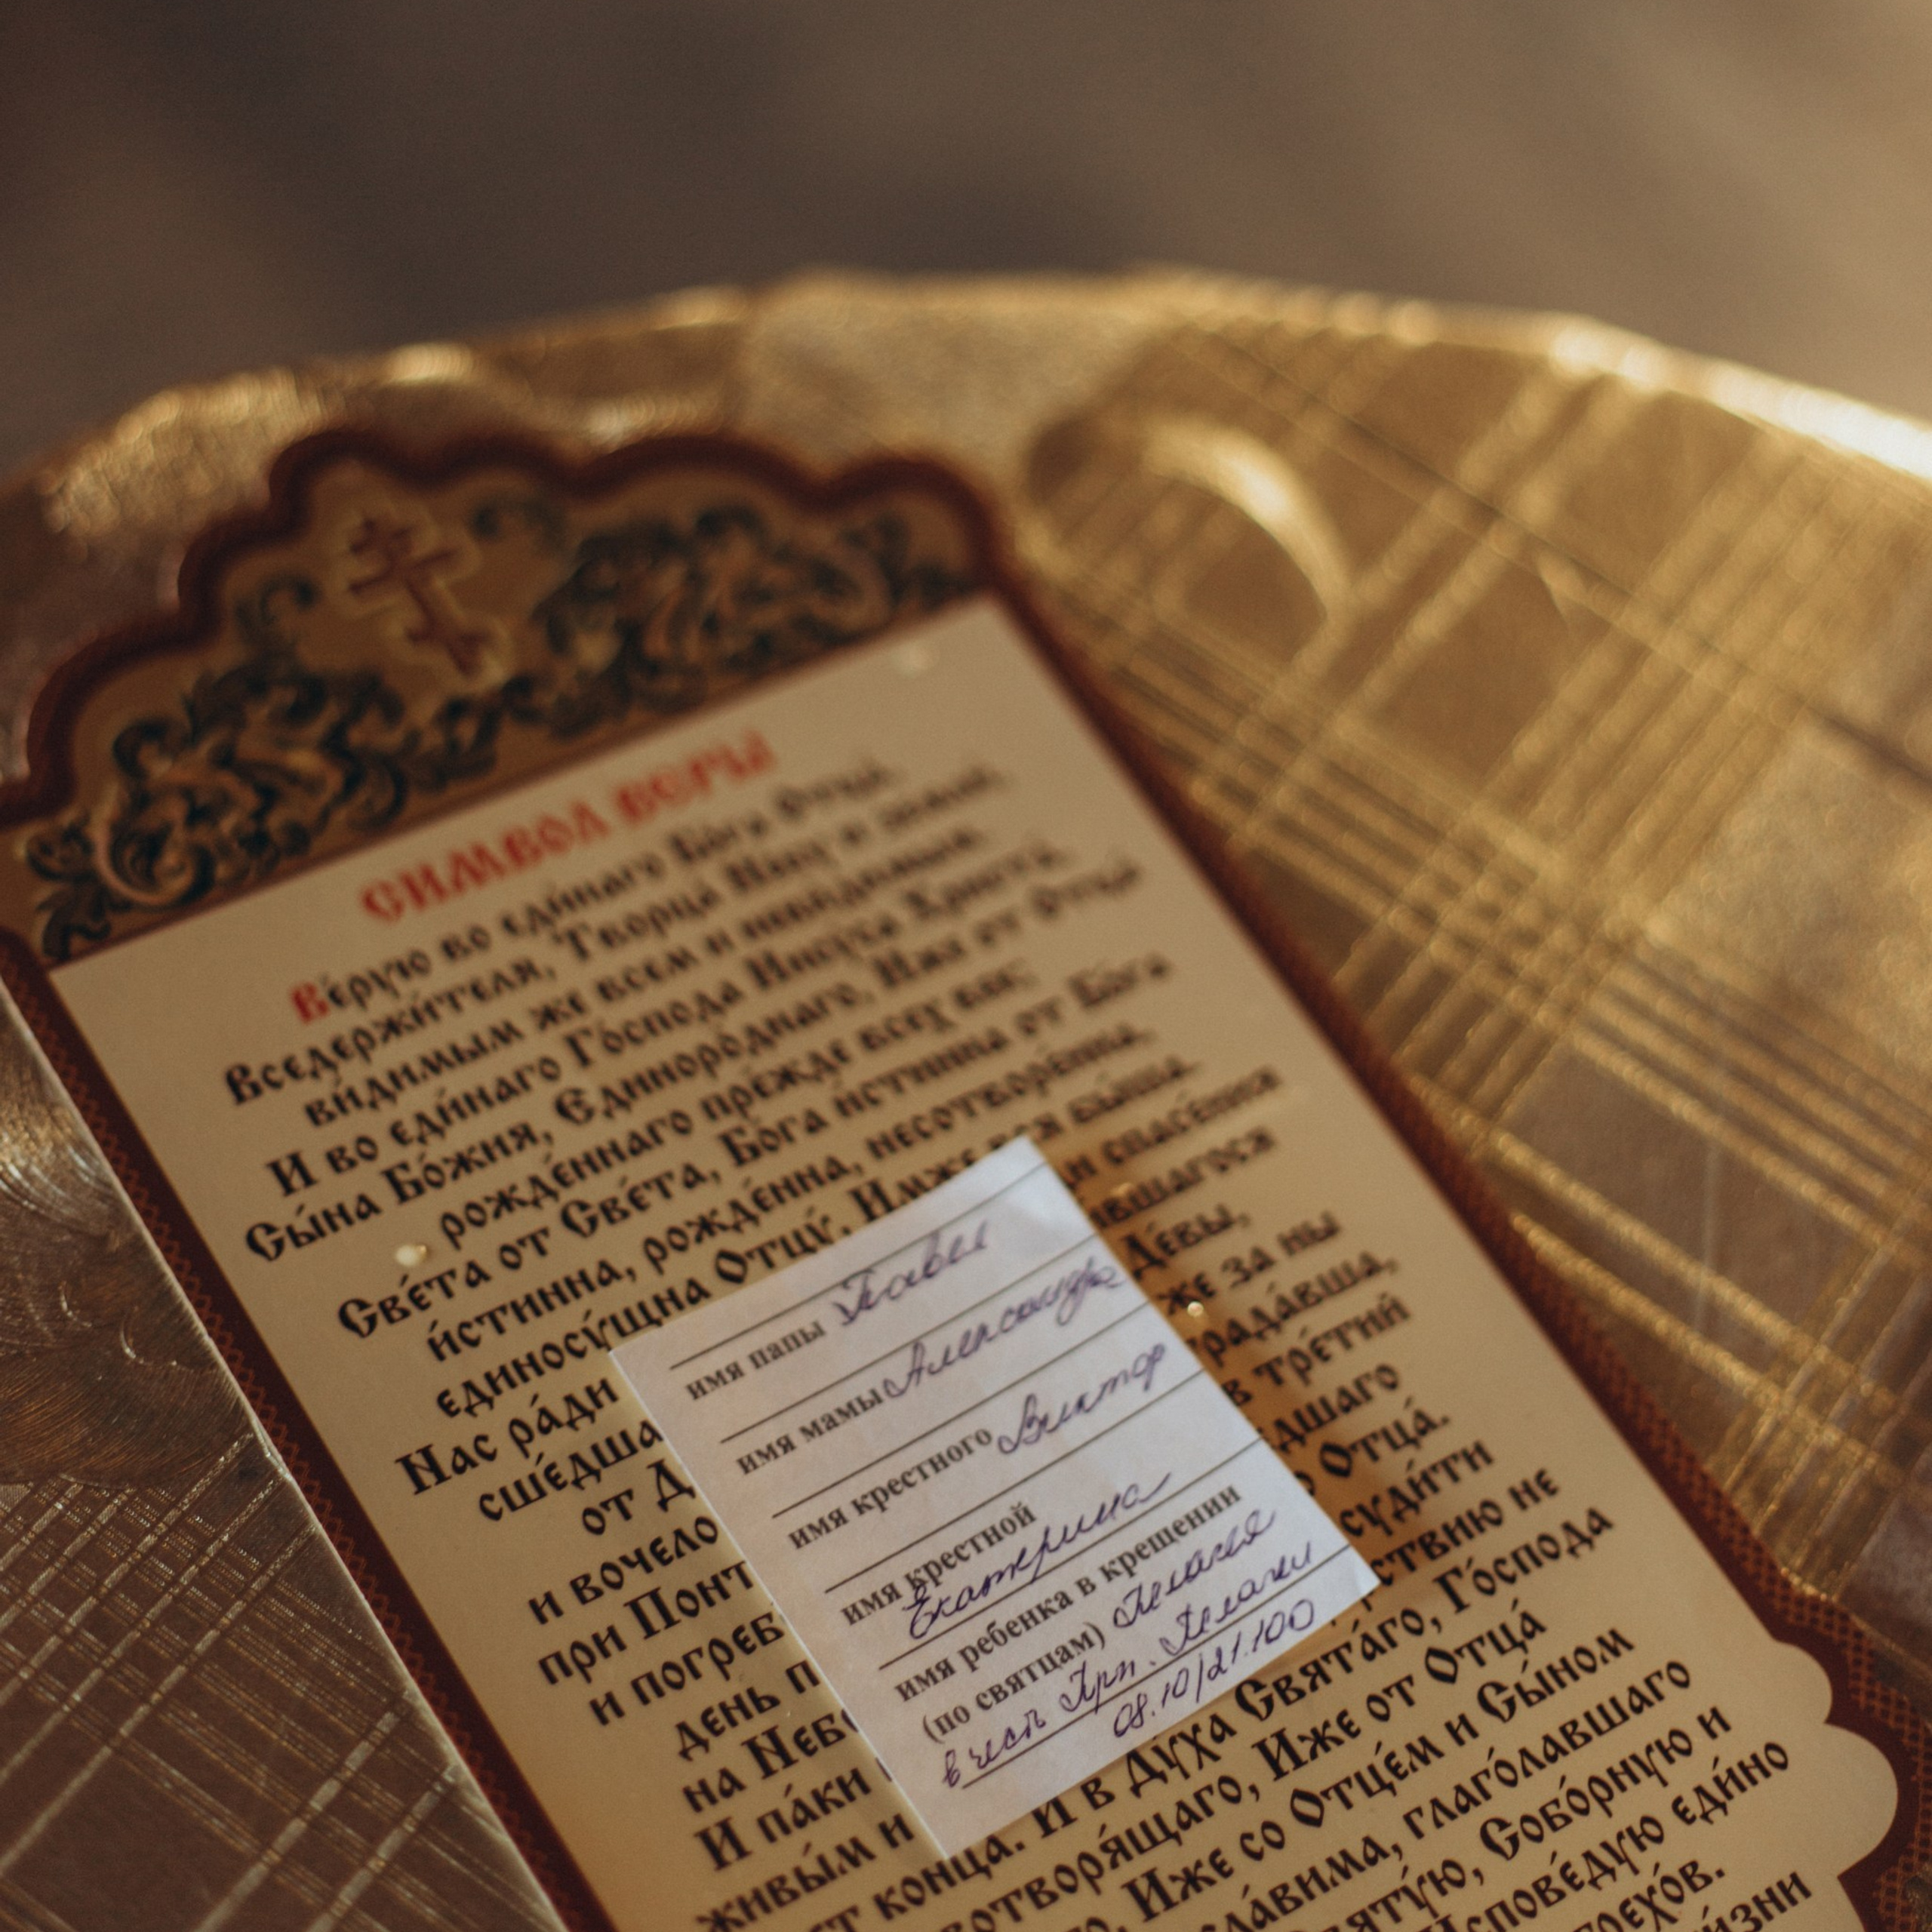 СИМВОЛ ВЕРЫ
Ве́рую во еди́наго Бо́га Отца́,
Вседержи́теля, Творца́ Не́бу и земли́,
ви́димым же всем и неви́димым.
И во еди́наго Го́спода Иису́са Христа́,
Сы́на Бо́жия, Единоро́днаго, Иже от Отца́
рожде́ннаго пре́жде всех век;
Све́та от Све́та, Бо́га и́стинна от Бо́га
и́стинна, рожде́нна, несотворе́нна,
единосу́щна Отцу́, Имже вся бы́ша.
Нас ра́ди спасе́ния
сше́дша вшагося
от Д Де́вы,
и вочело же за ны
при Понт страда́вша,
и погреб в тре́тий
день п дшаго
на Неб Отца́.
И па́ки суди́ти
живы́м и ствию не
конца. И в Ду́ха Свята́го, Го́спода
творя́щаго, Иже от Отца́
Иже со Отце́м и Сы́ном
сла́вима, глаго́лавшаго
святу́ю, Собо́рную и
Испове́дую еди́но
грехо́в.
и́зни
имя папы Павел
имя мамы Александра
имя крестного Виктор
имя крестной
Екатерина
имя ребенка в крещении
(по святцам) Пелагея
в честь Прп. Пелагии
08.10/21.100